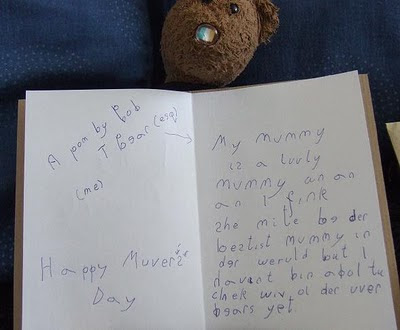 A pom by Bob
T Bear (esq)
(me)
Happy Muver's
Day
My mummy
iz a luvly
mummy an an
an I fink
she mite be der
beztist mummy in
der weruld but I
havent bin abol tu
chek wiv ol der uver
bears yet.